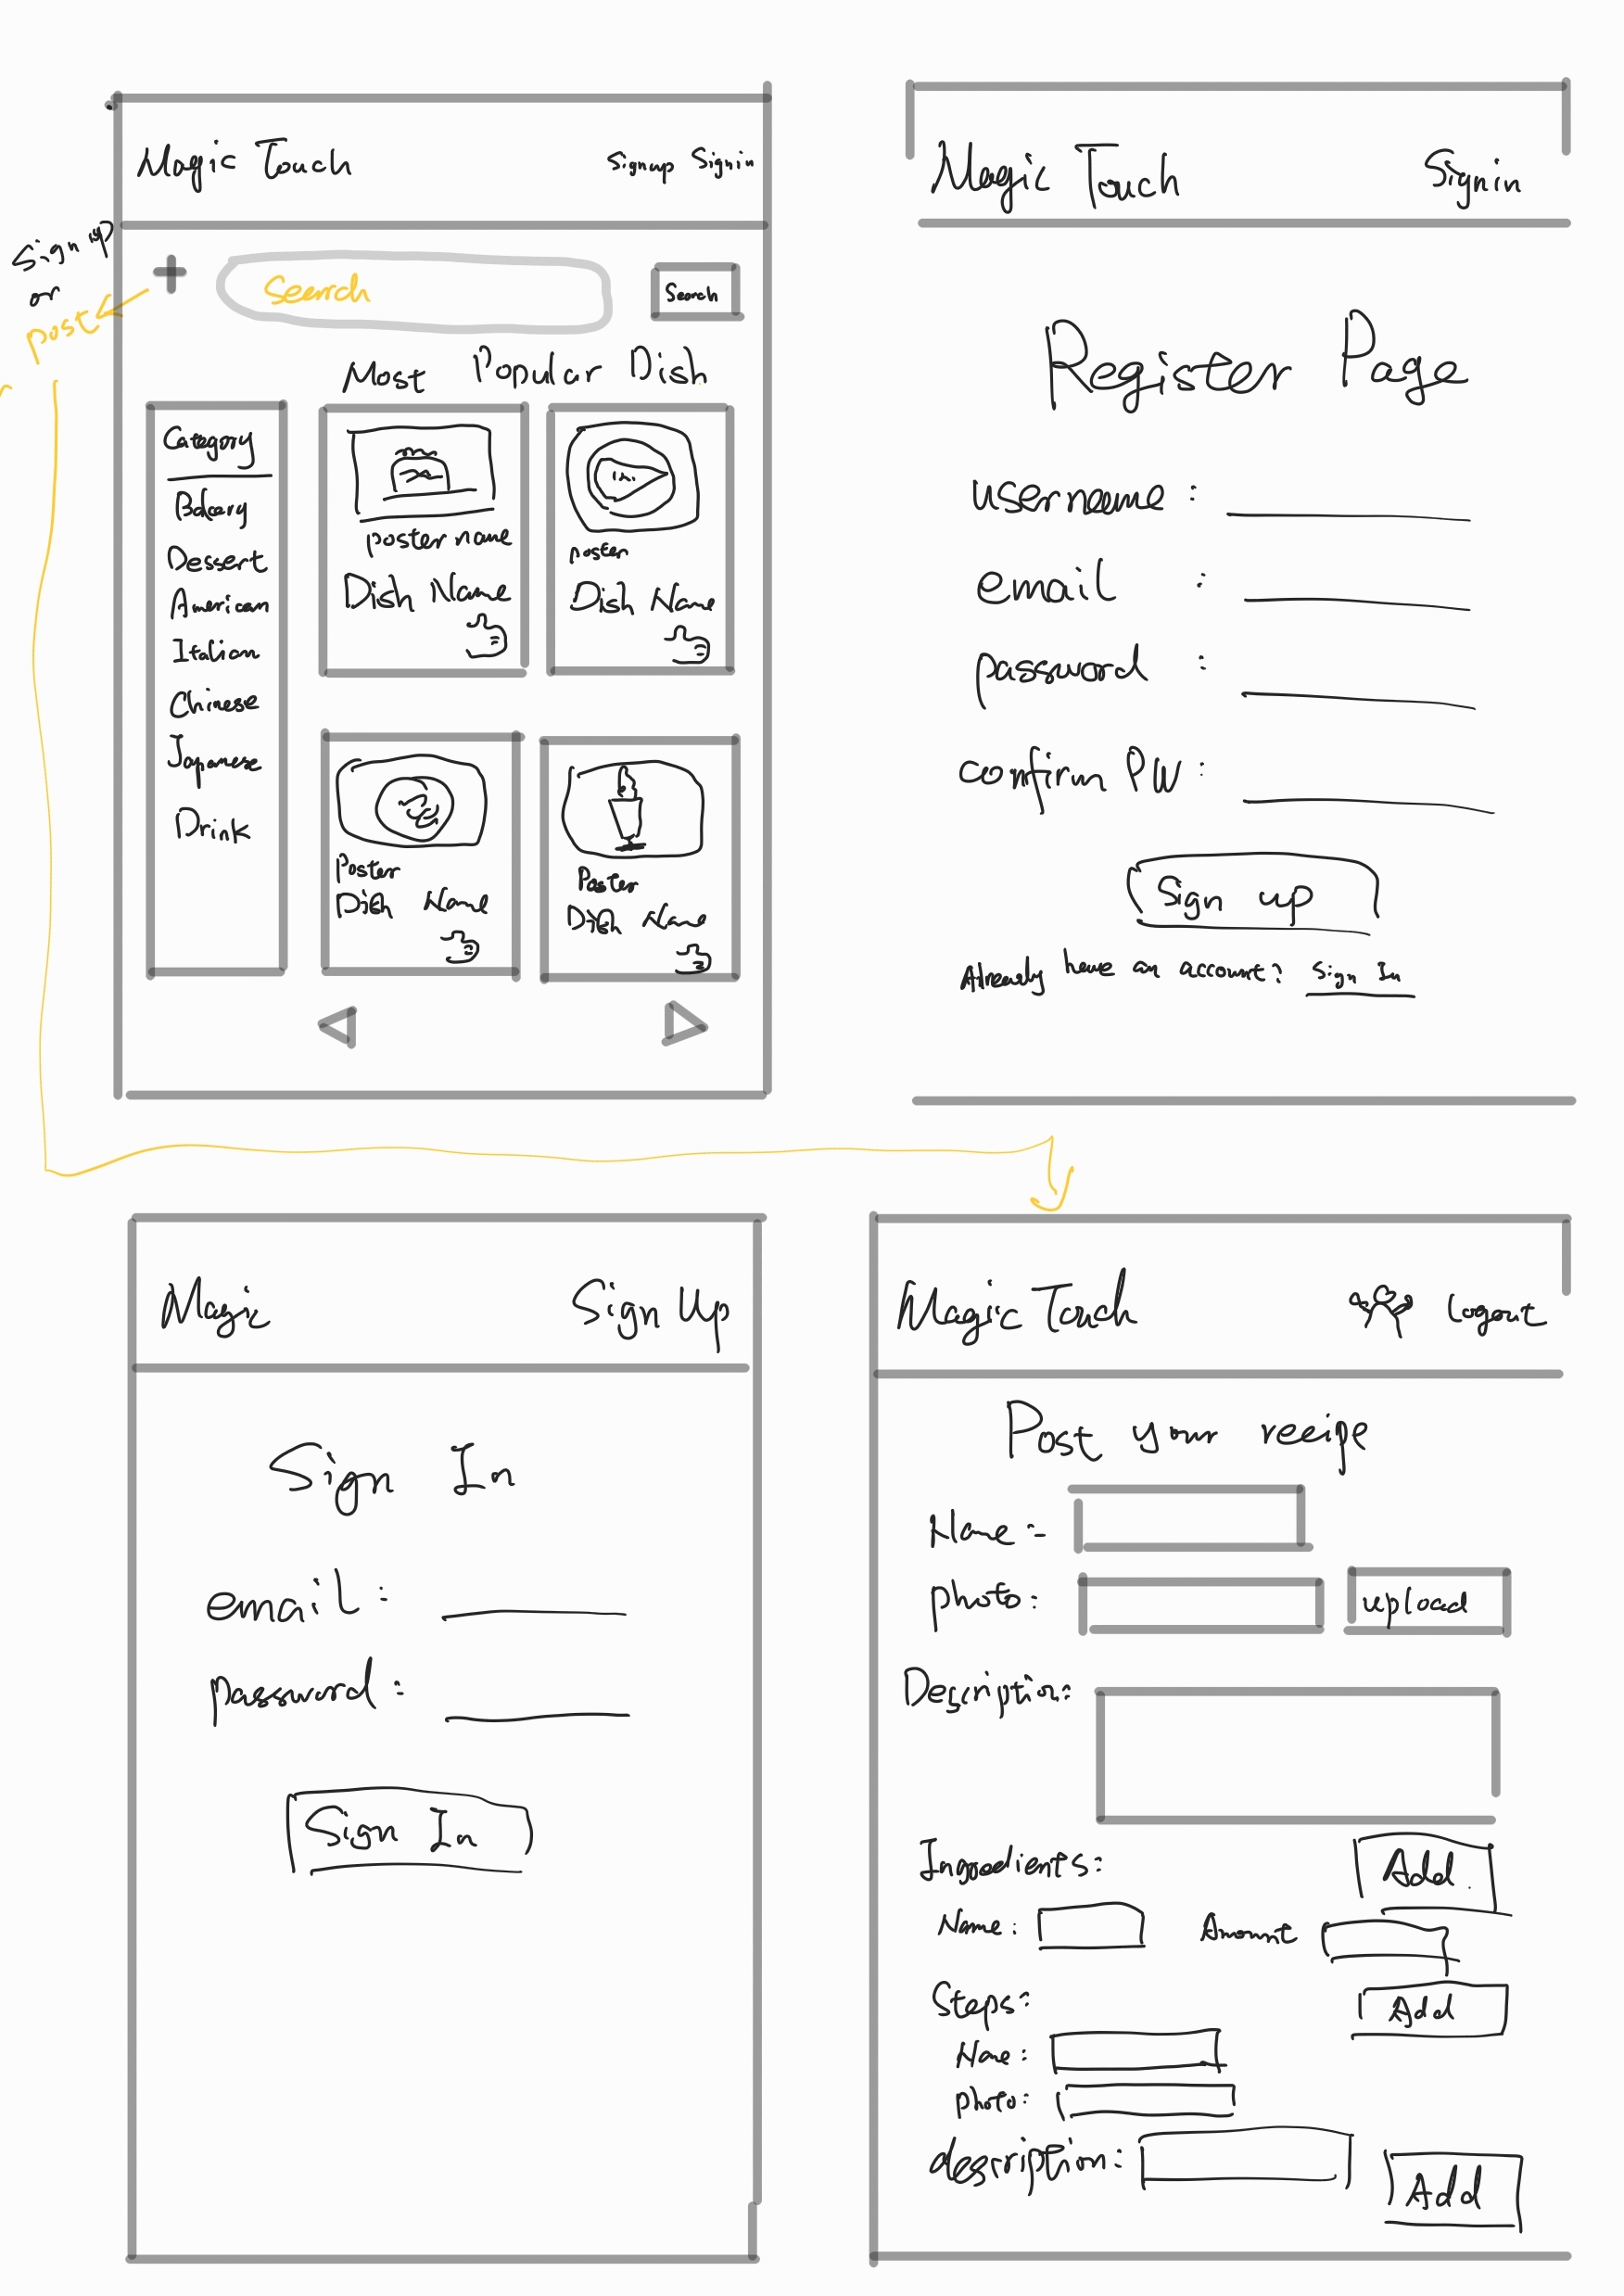 Magic Touch
Signup Signin
Sign up
or
post
+
Search
Search
Most Popular Dish
Category
Bakery
Dessert
American
Italian
Chinese
Japanese
Drink
poster name
Dish Name
poster
Dish Name
Poster
Dish Name
Poster
Dish Name
Magic Touch
Signin
Register Page
username :
email :
password :
confirm PW :
Sign up
Already have an account? Sign In
Magic
Sign Up
Sign In
email :
password :
Sign In
Magic Touch
Logout
Post your receipe
Name :
photo:
upload
Description:
Ingredients:
Add
Name:
Amount
Steps:
Add
Name:
photo:
description:
Add